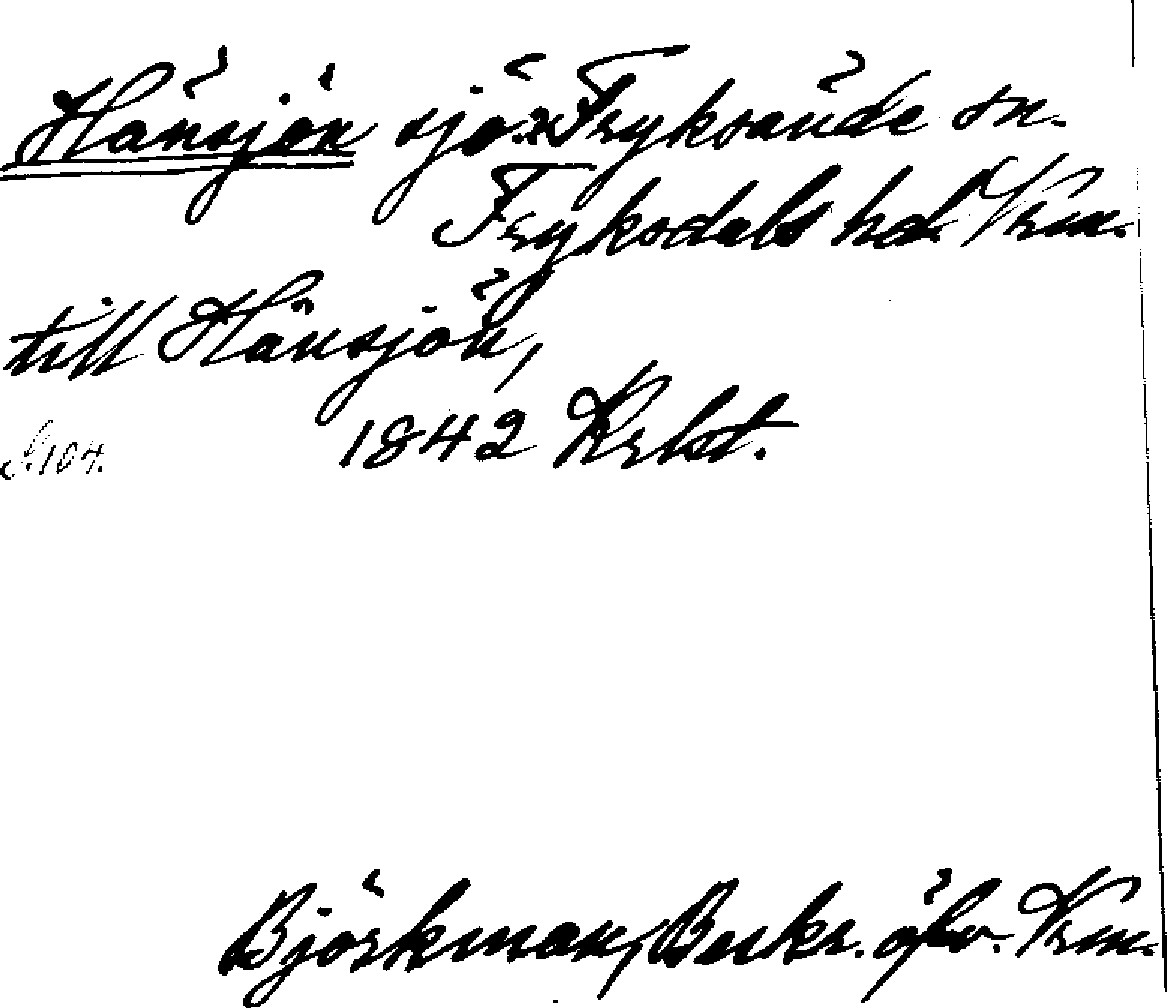 Hänsjön sjö. Fryksände sn.
Fryksdals hd. Vrm.
till Hänsjön,
1842 Krbst.
S. 104.
Björkman, Beskr. öfv. Vrm.